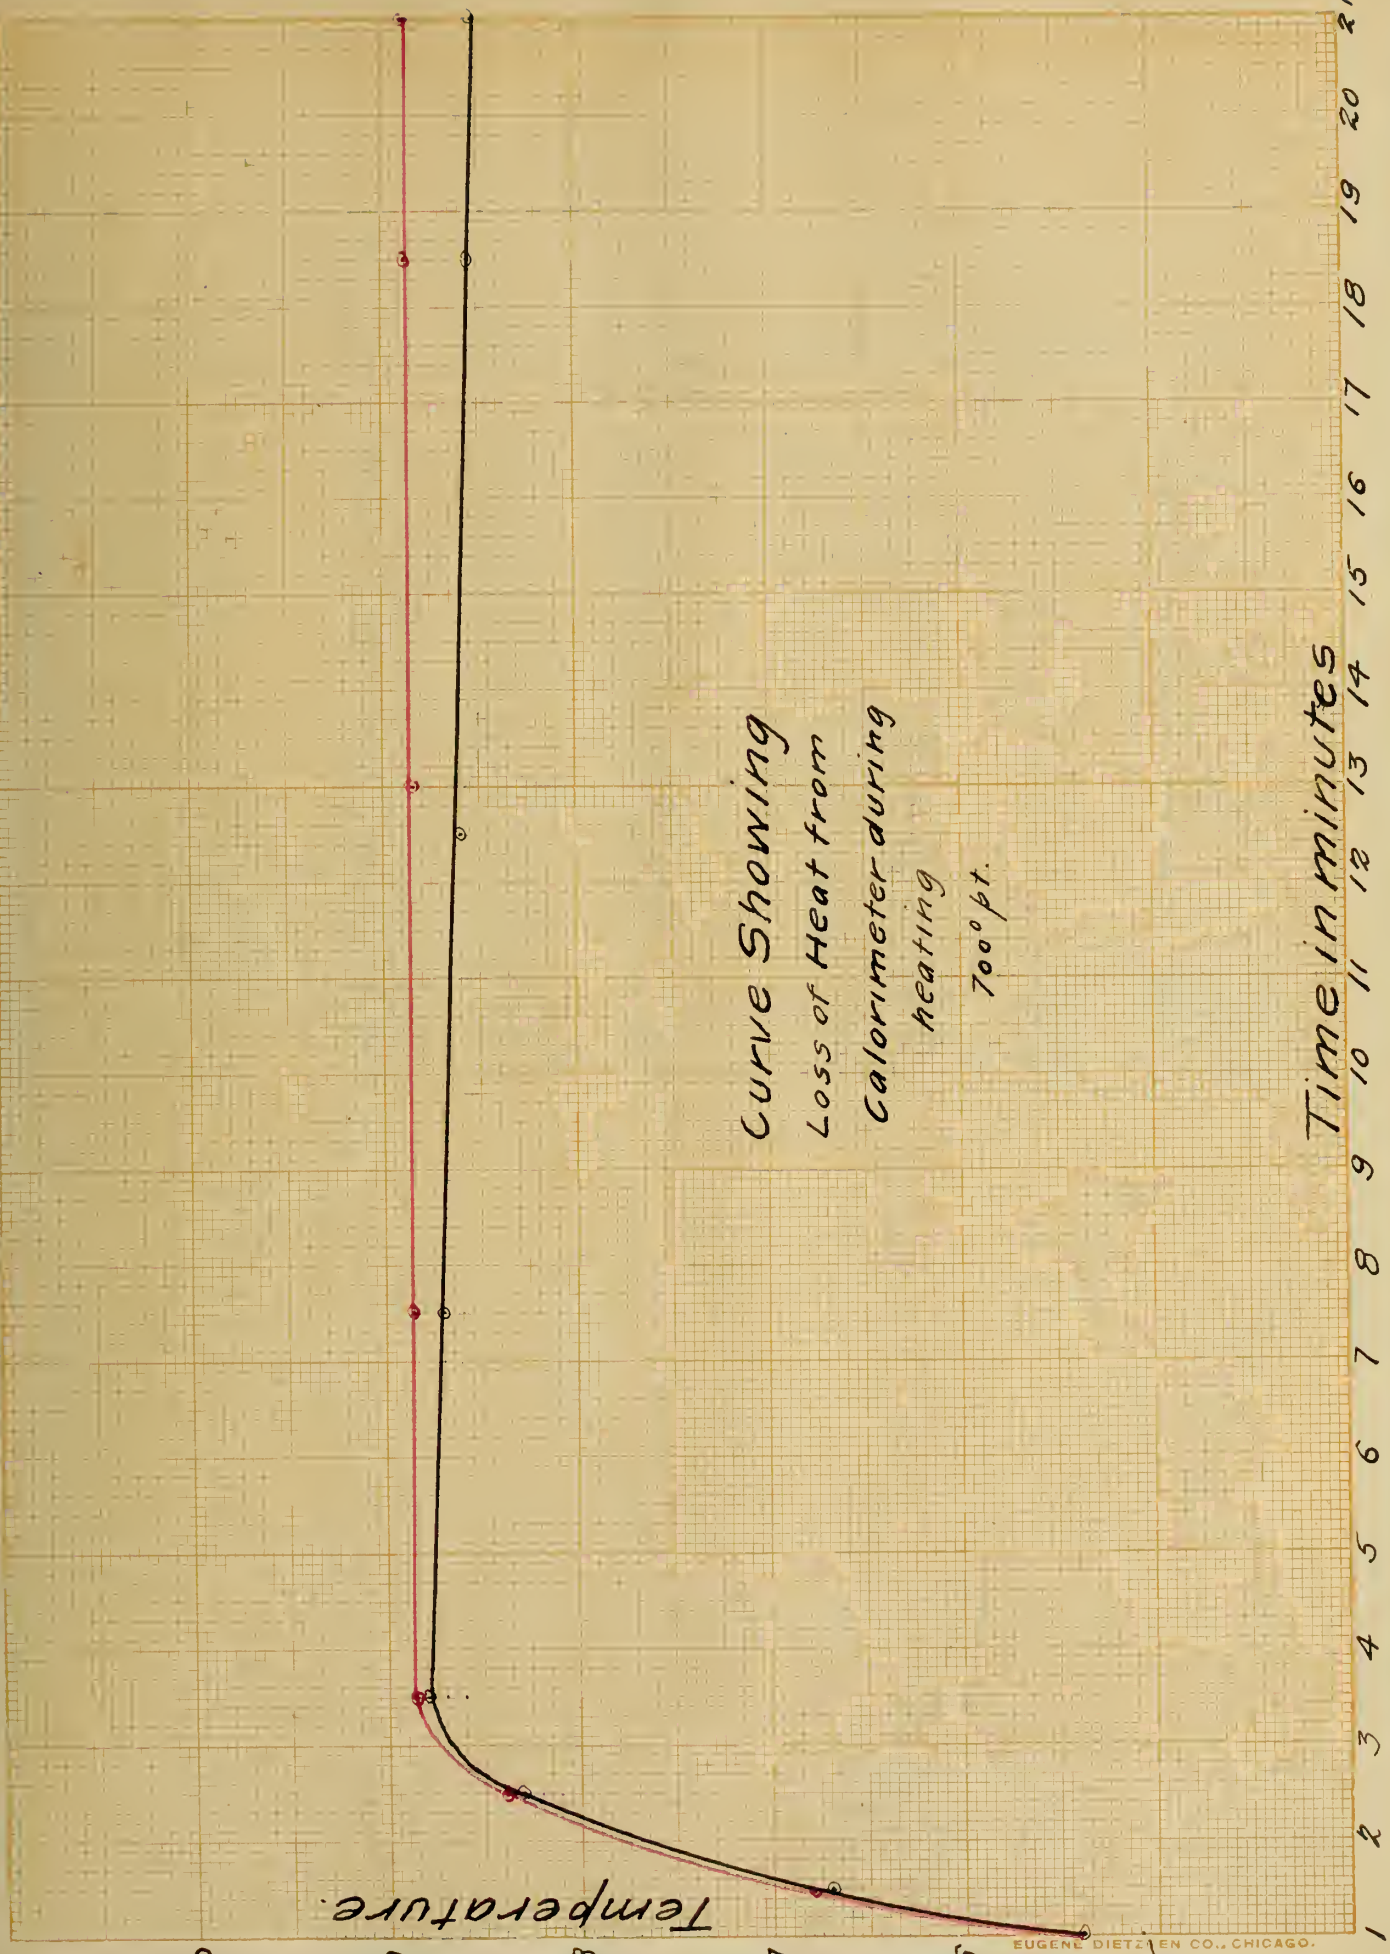 Temperature.
Curve Showing
Loss of Heat from
Calorimeter during
heating
700° pt.
Time in minutes
1 2 3 4 5 6 7 8 9 10 11 12 13 14 15 16 17 18 19 20 21
EUGENE DIETZGEN CO., CHICAGO.